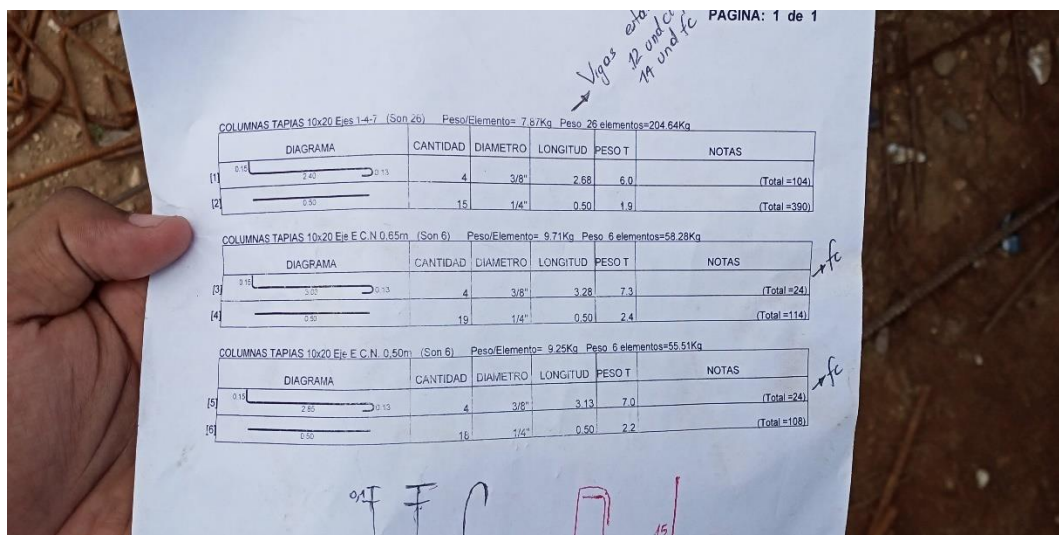 PAGINA: 1 de 1
Vigas
12 und
14 und fc
COLUMNAS TAPIAS 10x20 Ejes 1-4-7 (Son 26) Peso/Elemento= 7.87Kg Peso 26 elementos=204.64Kg
DIAGRAMA CANTIDAD DIAMETRO LONGITUD PESO T NOTAS
[1] 0.15 2.40 0.13 4 3/8" 2.68 6.0 (Total =104)
[2] 0.50 15 1/4" 0.50 1.9 (Total =390)
COLUMNAS TAPIAS 10x20 Eje E C.N 0.65m (Son 6) Peso/Elemento= 9.71Kg Peso 6 elementos=58.28Kg
fc
DIAGRAMA CANTIDAD DIAMETRO LONGITUD PESO T NOTAS
[3] 0.15 3.00 0.13 4 3/8" 3.28 7.3 (Total =24)
[4] 0.50 19 1/4" 0.50 2.4 (Total =114)
COLUMNAS TAPIAS 10x20 Eje E C.N. 0,50m (Son 6) Peso/Elemento= 9.25Kg Peso 6 elementos=55.51Kg
fc
DIAGRAMA CANTIDAD DIAMETRO LONGITUD PESO T NOTAS
[5] 0.15 2.85 0.13 4 3/8" 3.13 7.0 (Total =24)
[6] 0.50 18 1/4" 0.50 2.2 (Total =108)
15